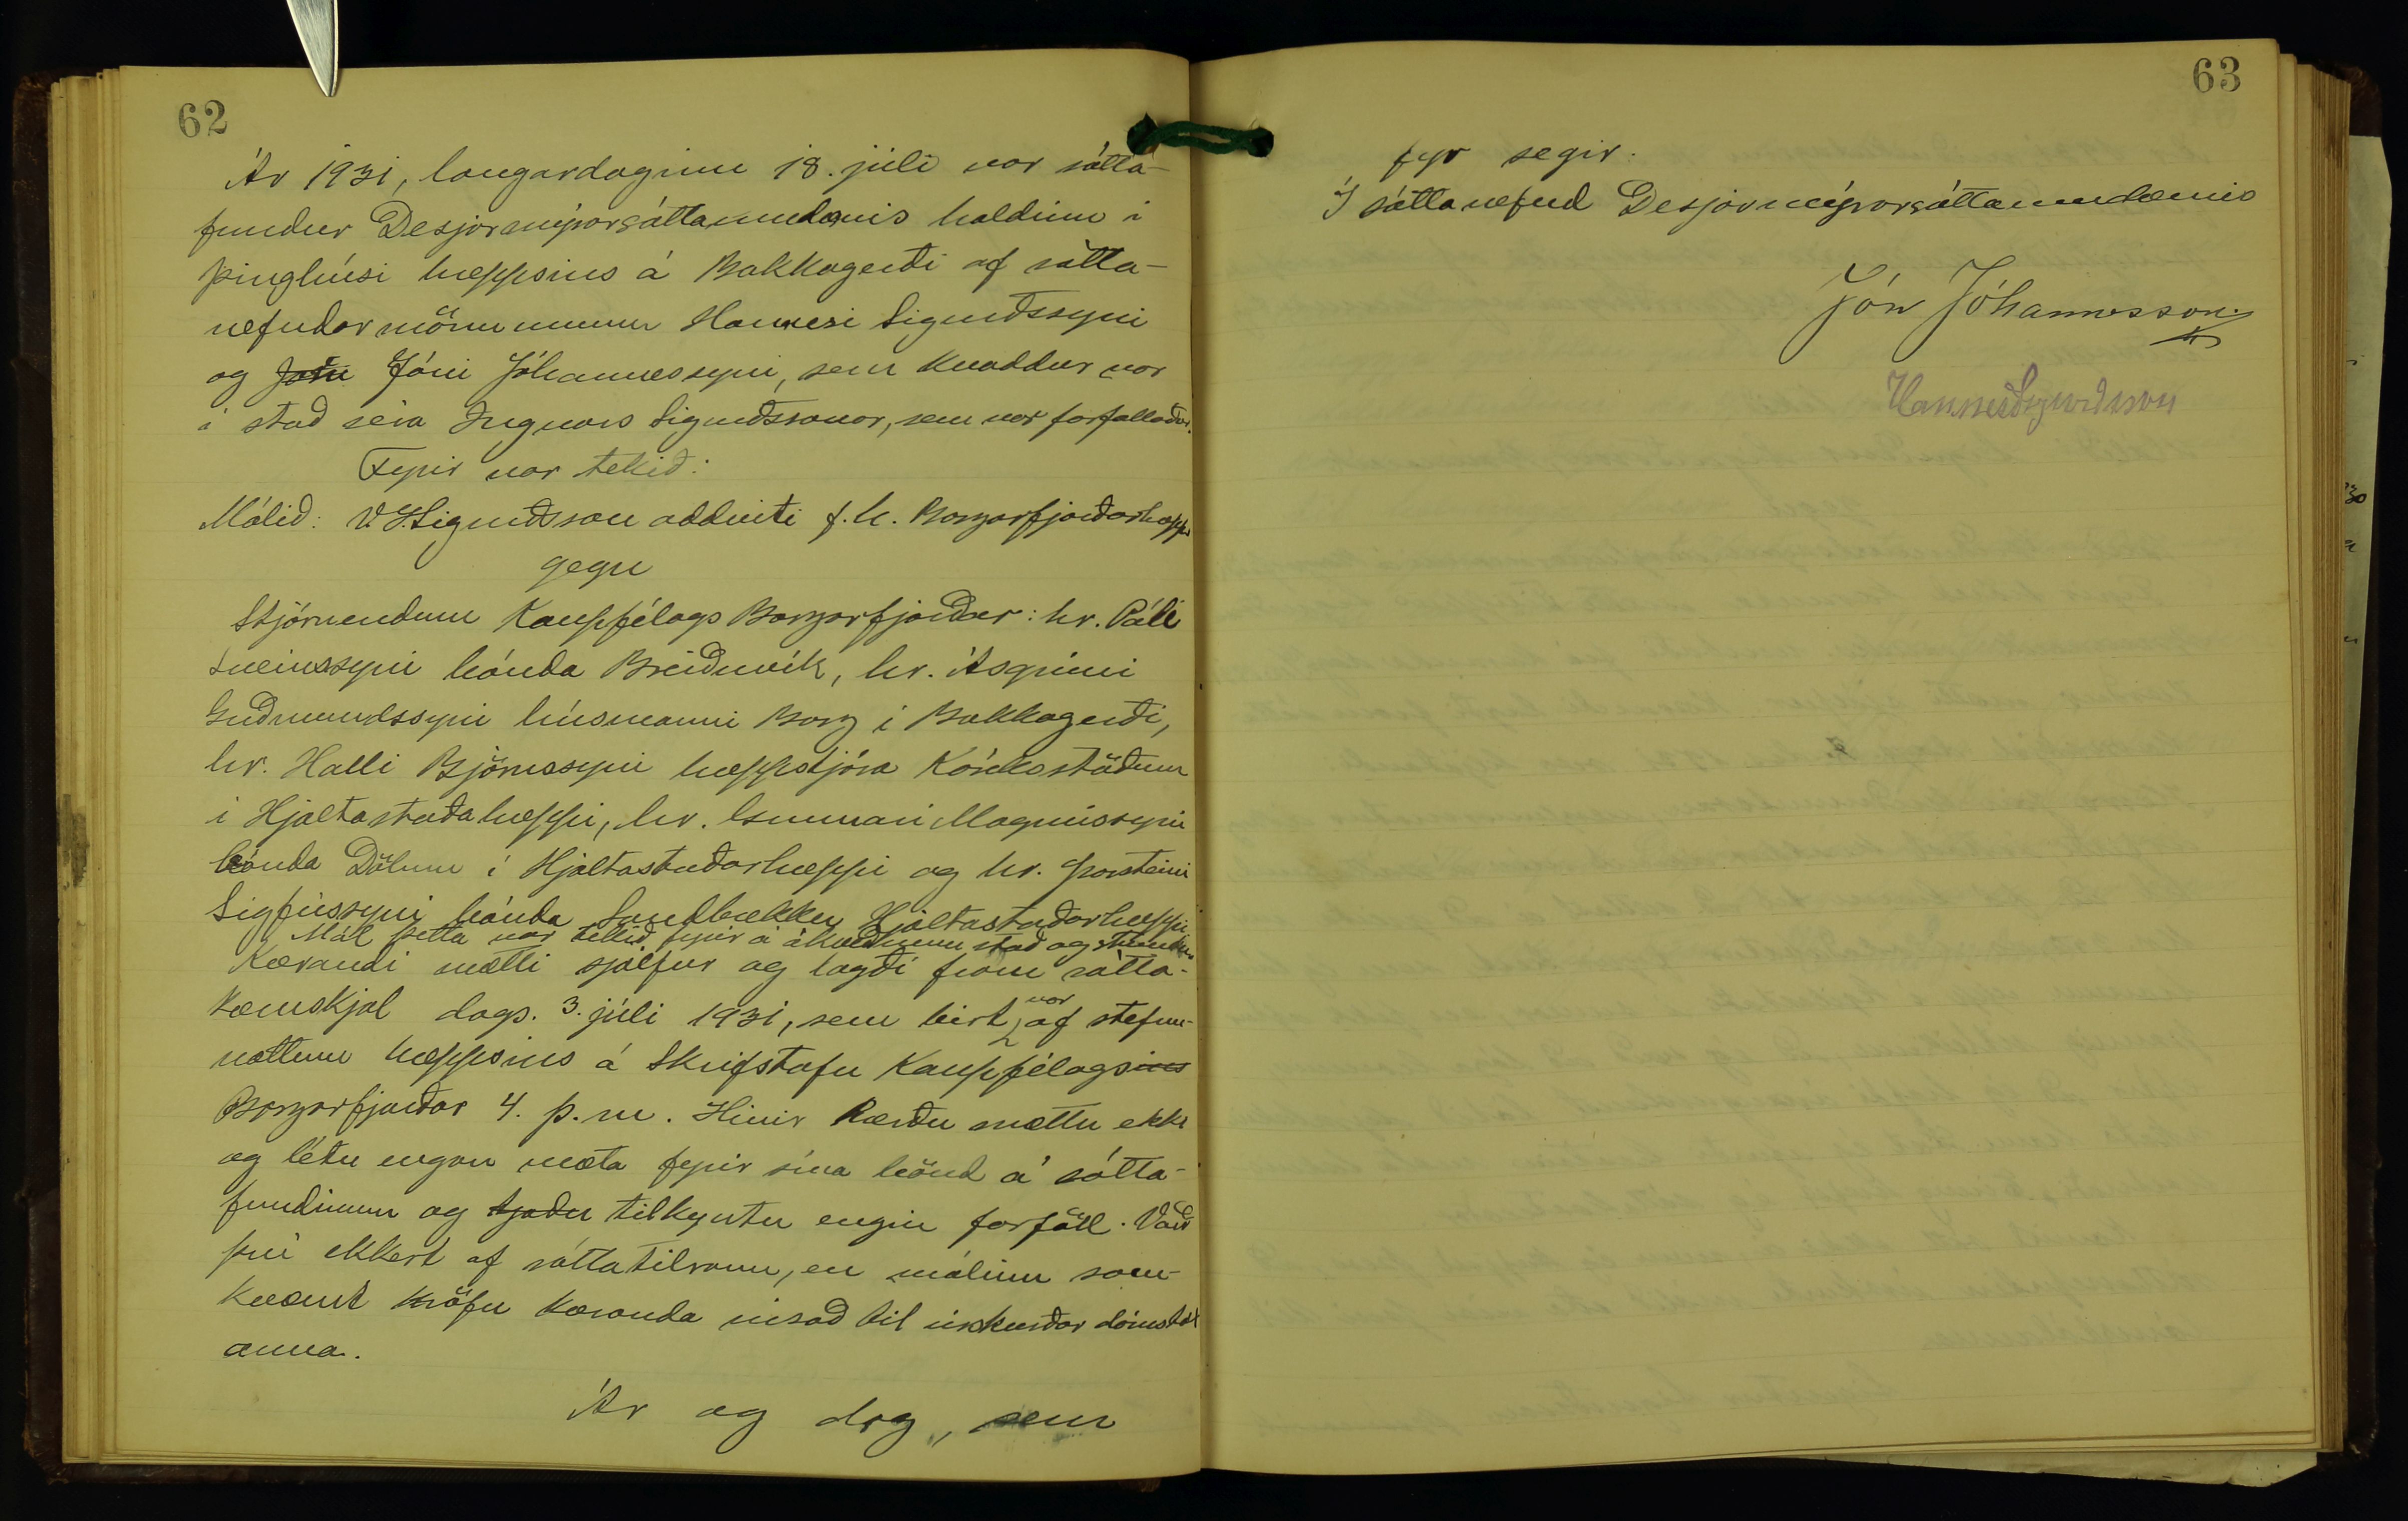 62
Ár 1931, laugardaginn 18. júlí var sátta-
fundur Desjarmýrarsáttaumdæmis haldinn í
þinghúsi hreppsins á Bakkagerði af sátta-
nefndarmönnunum Hannesi Sigurðssyni
og Jóni Jóni Jóhannessyni, sem kvaddur var
í stað séra Ingvars Sigurðssonar, sem var forfallaður.
Fyrir var tekið:
Málið: V.S. Sigurðsson oddviti f.h. Borgarfjarðarhrepps
gegn
Stjórnendum Kaupfélags Borgarfjarðar: hr. Páli
Sveinssyni bónda Breiðuvík, hr. Ásgrími
Guðmundssyni húsmanni Borg í Bakkagerði,
hr. Halli Björnssyni hreppstjóra Kóreksstöðum
í Hjaltastaðahreppi, hr. Gunnari Magnússyni
bónda Dölum í Hjaltastaðarhreppi og hr. Þorsteini
Sigfússyni bónda Sandbrekku Hjaltastaðarhreppi
Mál þetta var tekið fyrir á ákveðnum stað og stundu
Kærandi mætti sjálfur og lagði fram sátta-
kæruskjal dags. 3. júlí 1931, sem birt var af stefnu-
vottum hreppsins á skrifstofu Kaupfélagsins
Borgarfjarðar 4. þ.m. Hinir kærðu mættu ekki
og létu engan mæta fyrir sína hönd á sátta-
fundinum og tjáðu tilkyntu engin forföll. Varð
því ekkert af sáttatilraun, en málinu sam-
kvæmt kröfu kæranda vísað til úrskurðar dómstól
anna.
Ár og dag, sem
63
fyr segir.
Í sáttanefnd Desjarmýrarsáttaumdæmis
Jón Jóhannesson
Hannes Sigurðsson